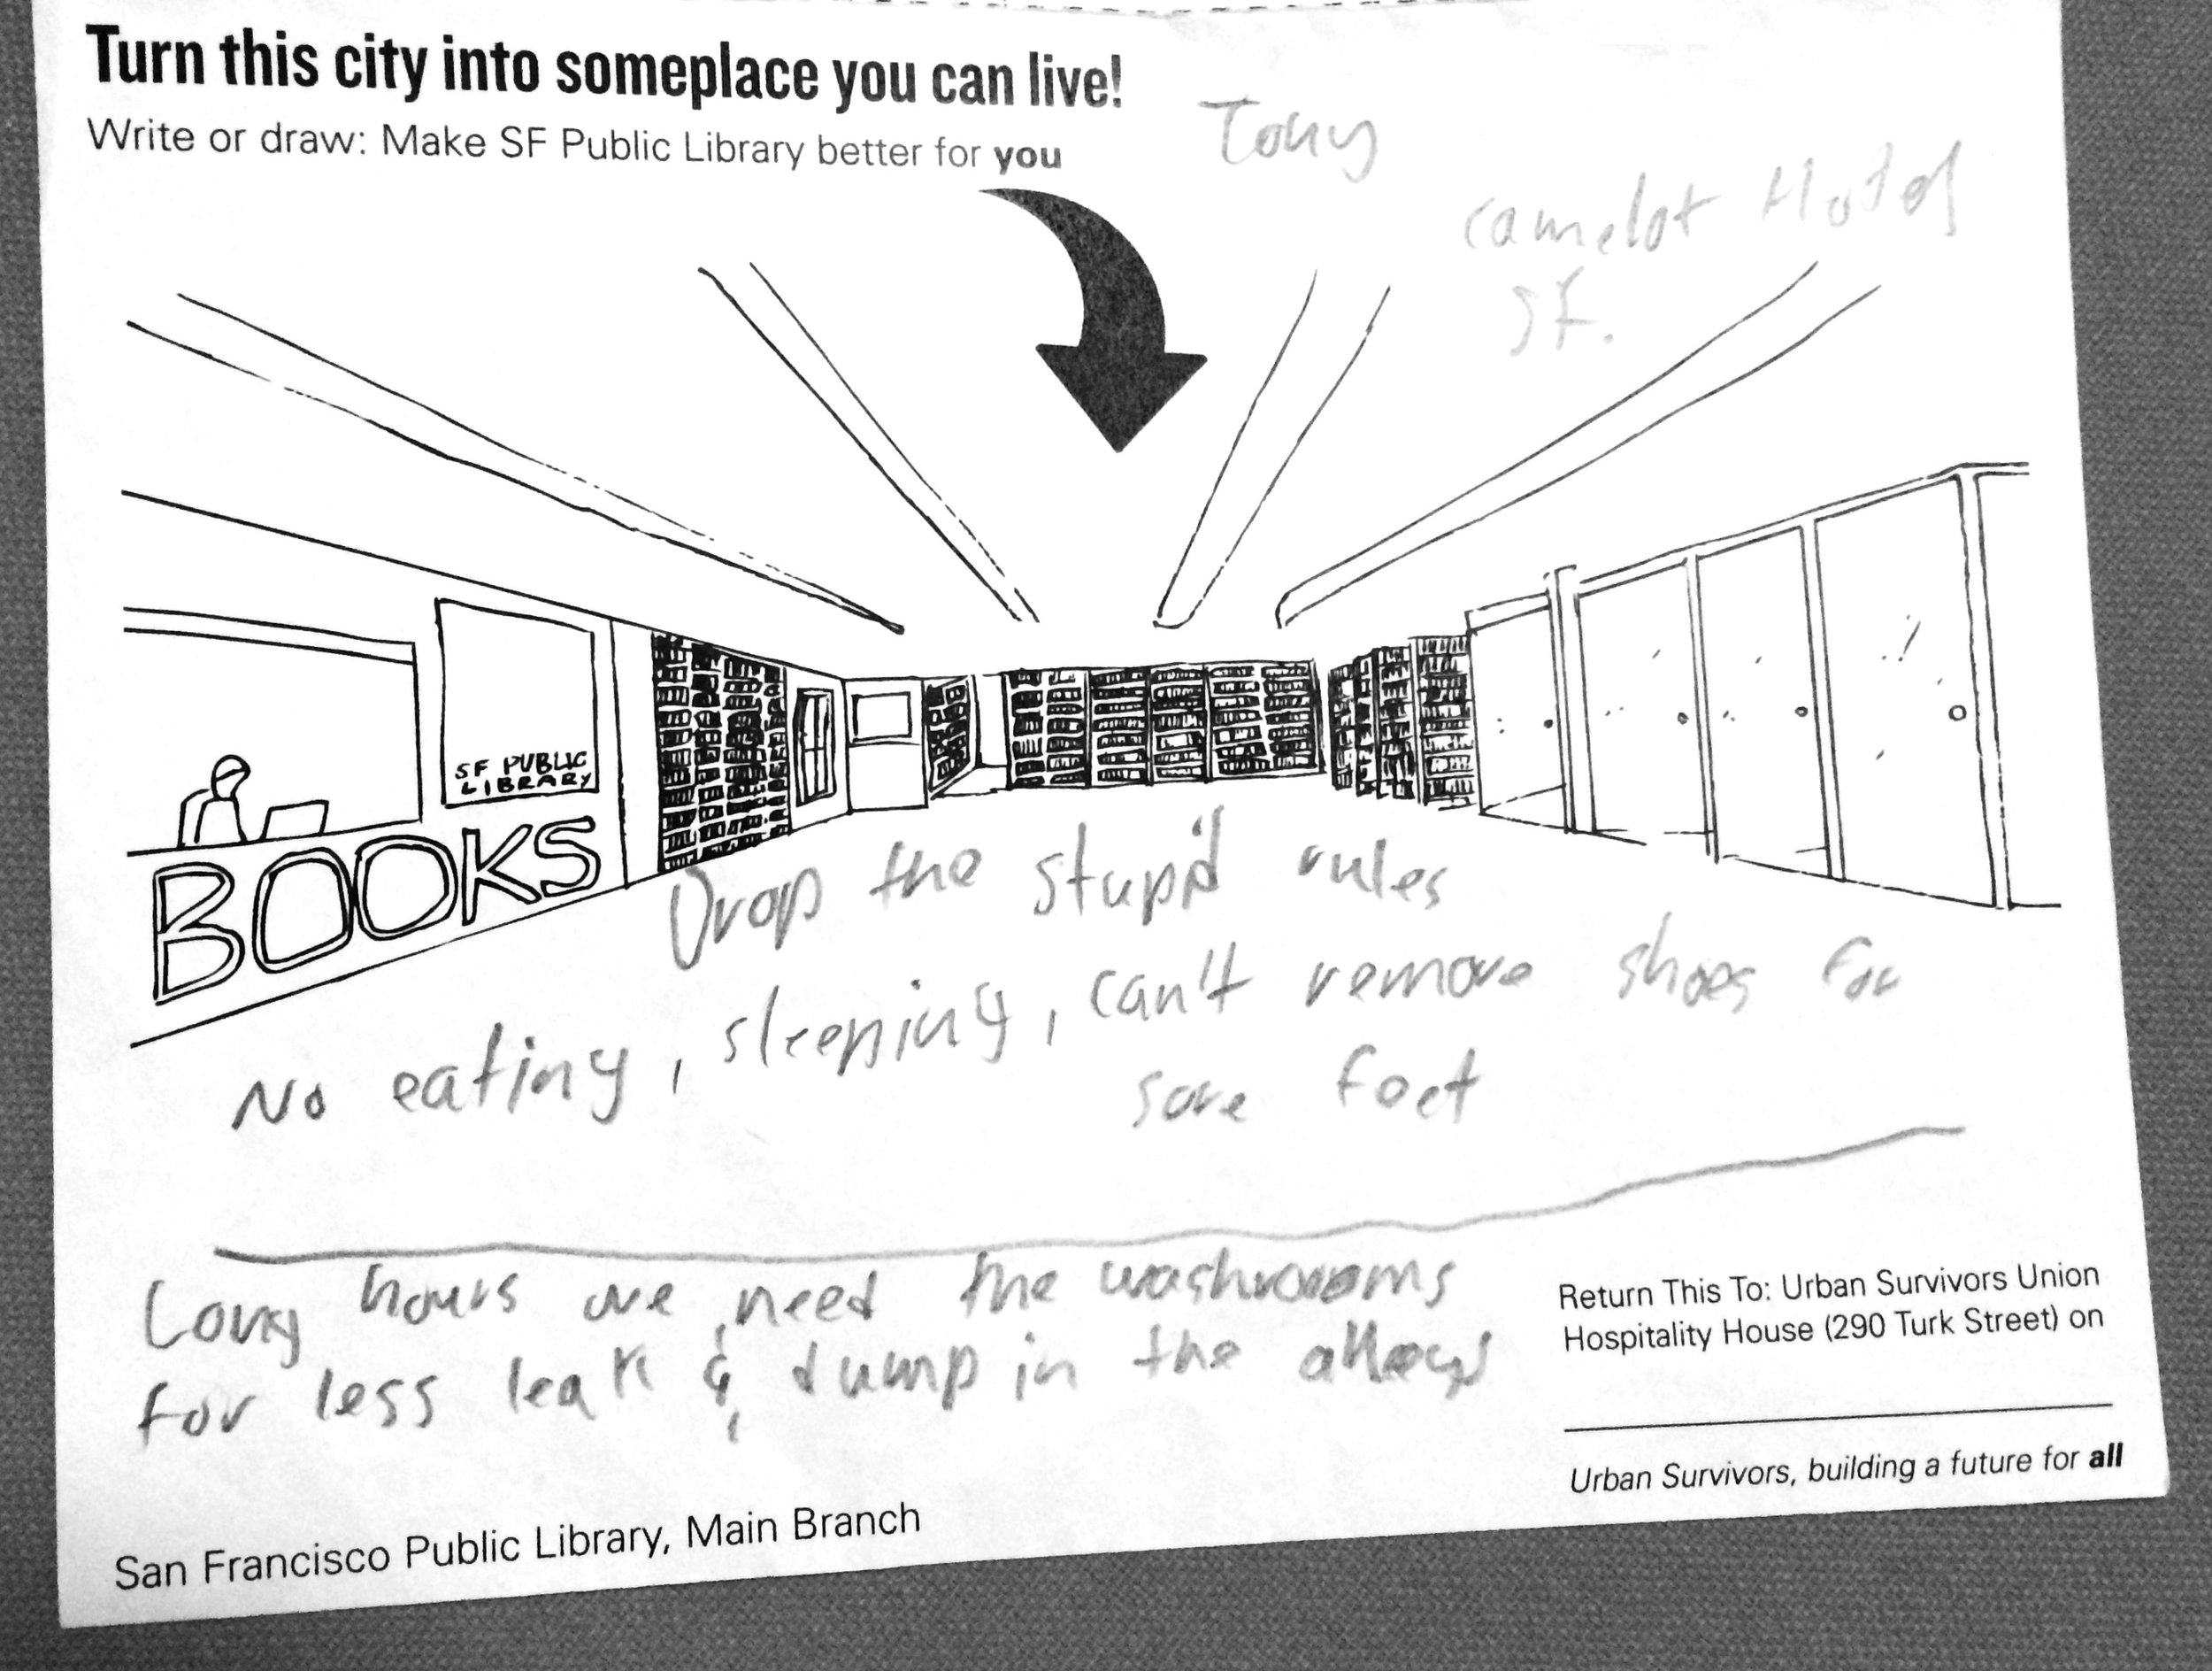 Turn this city into someplace you can live!
Write or draw: Make SF Public Library better for you
Tony
Camelot Hotel
SF.
SF PUBLIC
LIBRARY
BOOKS
Drop the stupid rules
No eating, sleeping, can't remove shoes for
sore feet
Long hours we need the washrooms
for less leak & dump in the alleys
Return This To: Urban Survivors Union
Hospitality House (290 Turk Street) on
Urban Survivors, building a future for all
San Francisco Public Library, Main Branch